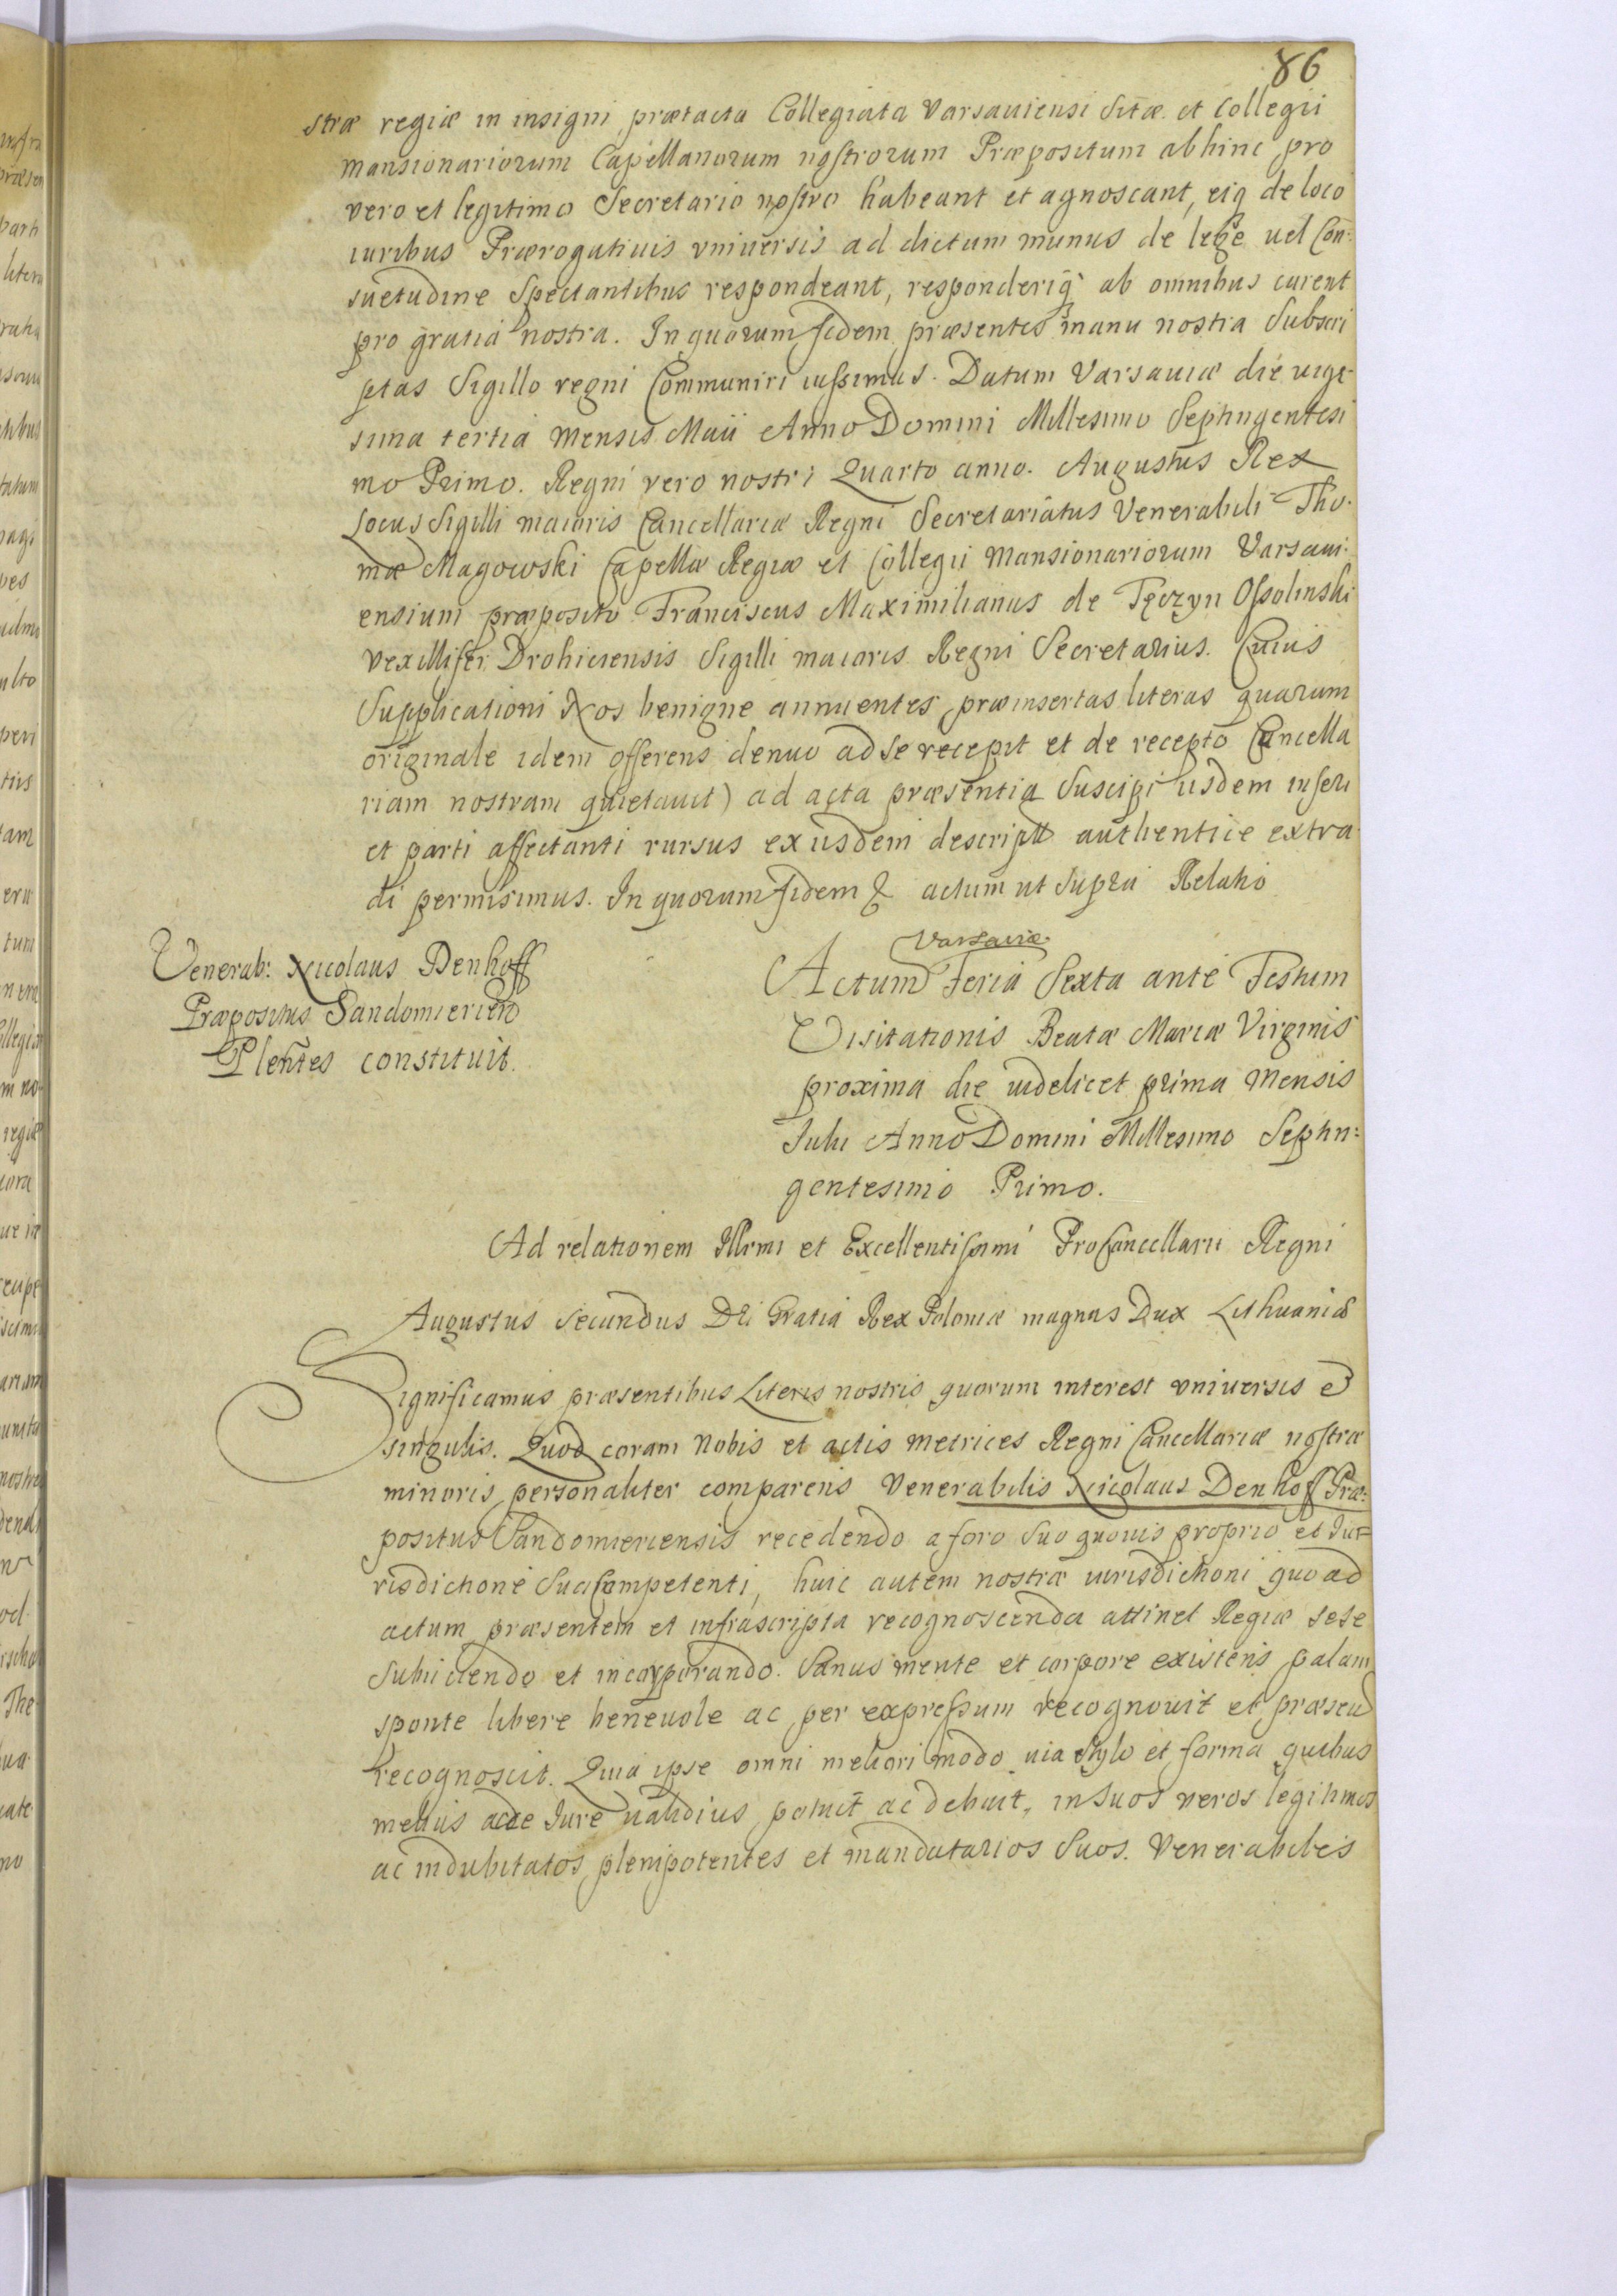 86
stræ regiæ in insigni prætacta Collegiata Varsauiensi sitæ et Collegii
mansionariorum Capellanorum nostrorum Præpositum abhinc pro
vero et legitimo Secretario nostro habeant et agnoscant, eiq de loco
iuribus Prærogatiuis vniuersis ad dictum munus de lege uel Con:
suetudine Spectantibus respondeant, responderiq ab omnibus curent
pro gratia nostra. In quorum fidem præsentes manu nostra Subscri
ptas Sigillo regni Communiri iussimus. Datum Varsauiæ die uige
sima tertia mensis Maii Anno Domini Millesimo Septingentesi
mo Primo. Regni vero nostri Quarto anno. Augustus Rex
Locus Sigilli maioris Cancellariæ Regni Secretariatus Venerabili Tho:
mæ Magowski Capellæ Regiæ et Collegii Mansionariorum Varsaui:
ensium præposito Franciscus Maximilianus de Tęczyn Ossolinski
vexillifer Drohiciensis Sigilli maioris Regni Secretarius. Cuius
Supplicationi Nos benigne annuentes præinsertas literas quarum
originale idem offerens denuo ad se recepit et de recepto Cancella
riam nostram quietauit) ad acta præsentia Suscipi iisdem inseri
et parti affectanti rursus ex iisdem descripta authentice extra
di permisimus. In quorum fidem & actum ut Supra Relatio
Venerab: Nicolaus Denhoff
Præpositus Sandomierien
Plentes constituit.
Varsaviæ
Actum Feria Sexta ante Festum
Visitationis Beatæ Mariæ Virginis
proxima die videlicet prima Mensis
Iulii Anno Domini Millesimo Septin:
gentesimo Primo.
Ad relationem Illrmi et Excellentissimi ProCancellarii Regni
Augustus Secundus Dei Gratia Rex Poloniæ magnus Dux Lithuaniæ
Significamus præsentibus Literis nostris quorum interest vniuersis et
singulis. Quod coram Nobis et actis metrices Regni Cancellariæ nostræ
minoris personaliter comparens Venerabilis Nicolaus Denhoff Præ:
positus Sandomieriensis recedendo a foro suo quouis proprio et Iu=
risdictione sua Competenti, huic autem nostræ iurisdictioni quo ad
actum præsentem et infrascripta recognoscenda attinet Regiæ sese
Subiiciendo et incorporando. Sanus mente et corpore existens palam
sponte libere beneuole ac per expressum recognouit et præsen
recognoscit. Quia ipse omni meliori modo uia stylo et forma quibus
melius ac de Iure validius potuit ac debuit, in suos veros legitimos
ac indubitatos plenipotentes et mandatarios Suos. Venerabiles